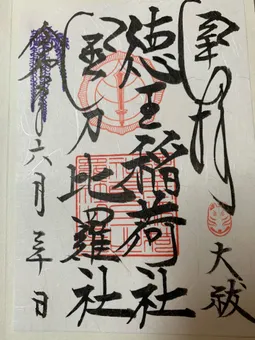 奉拝
大祓
徳王稲荷社
金刀比羅社
令和 六月三十日